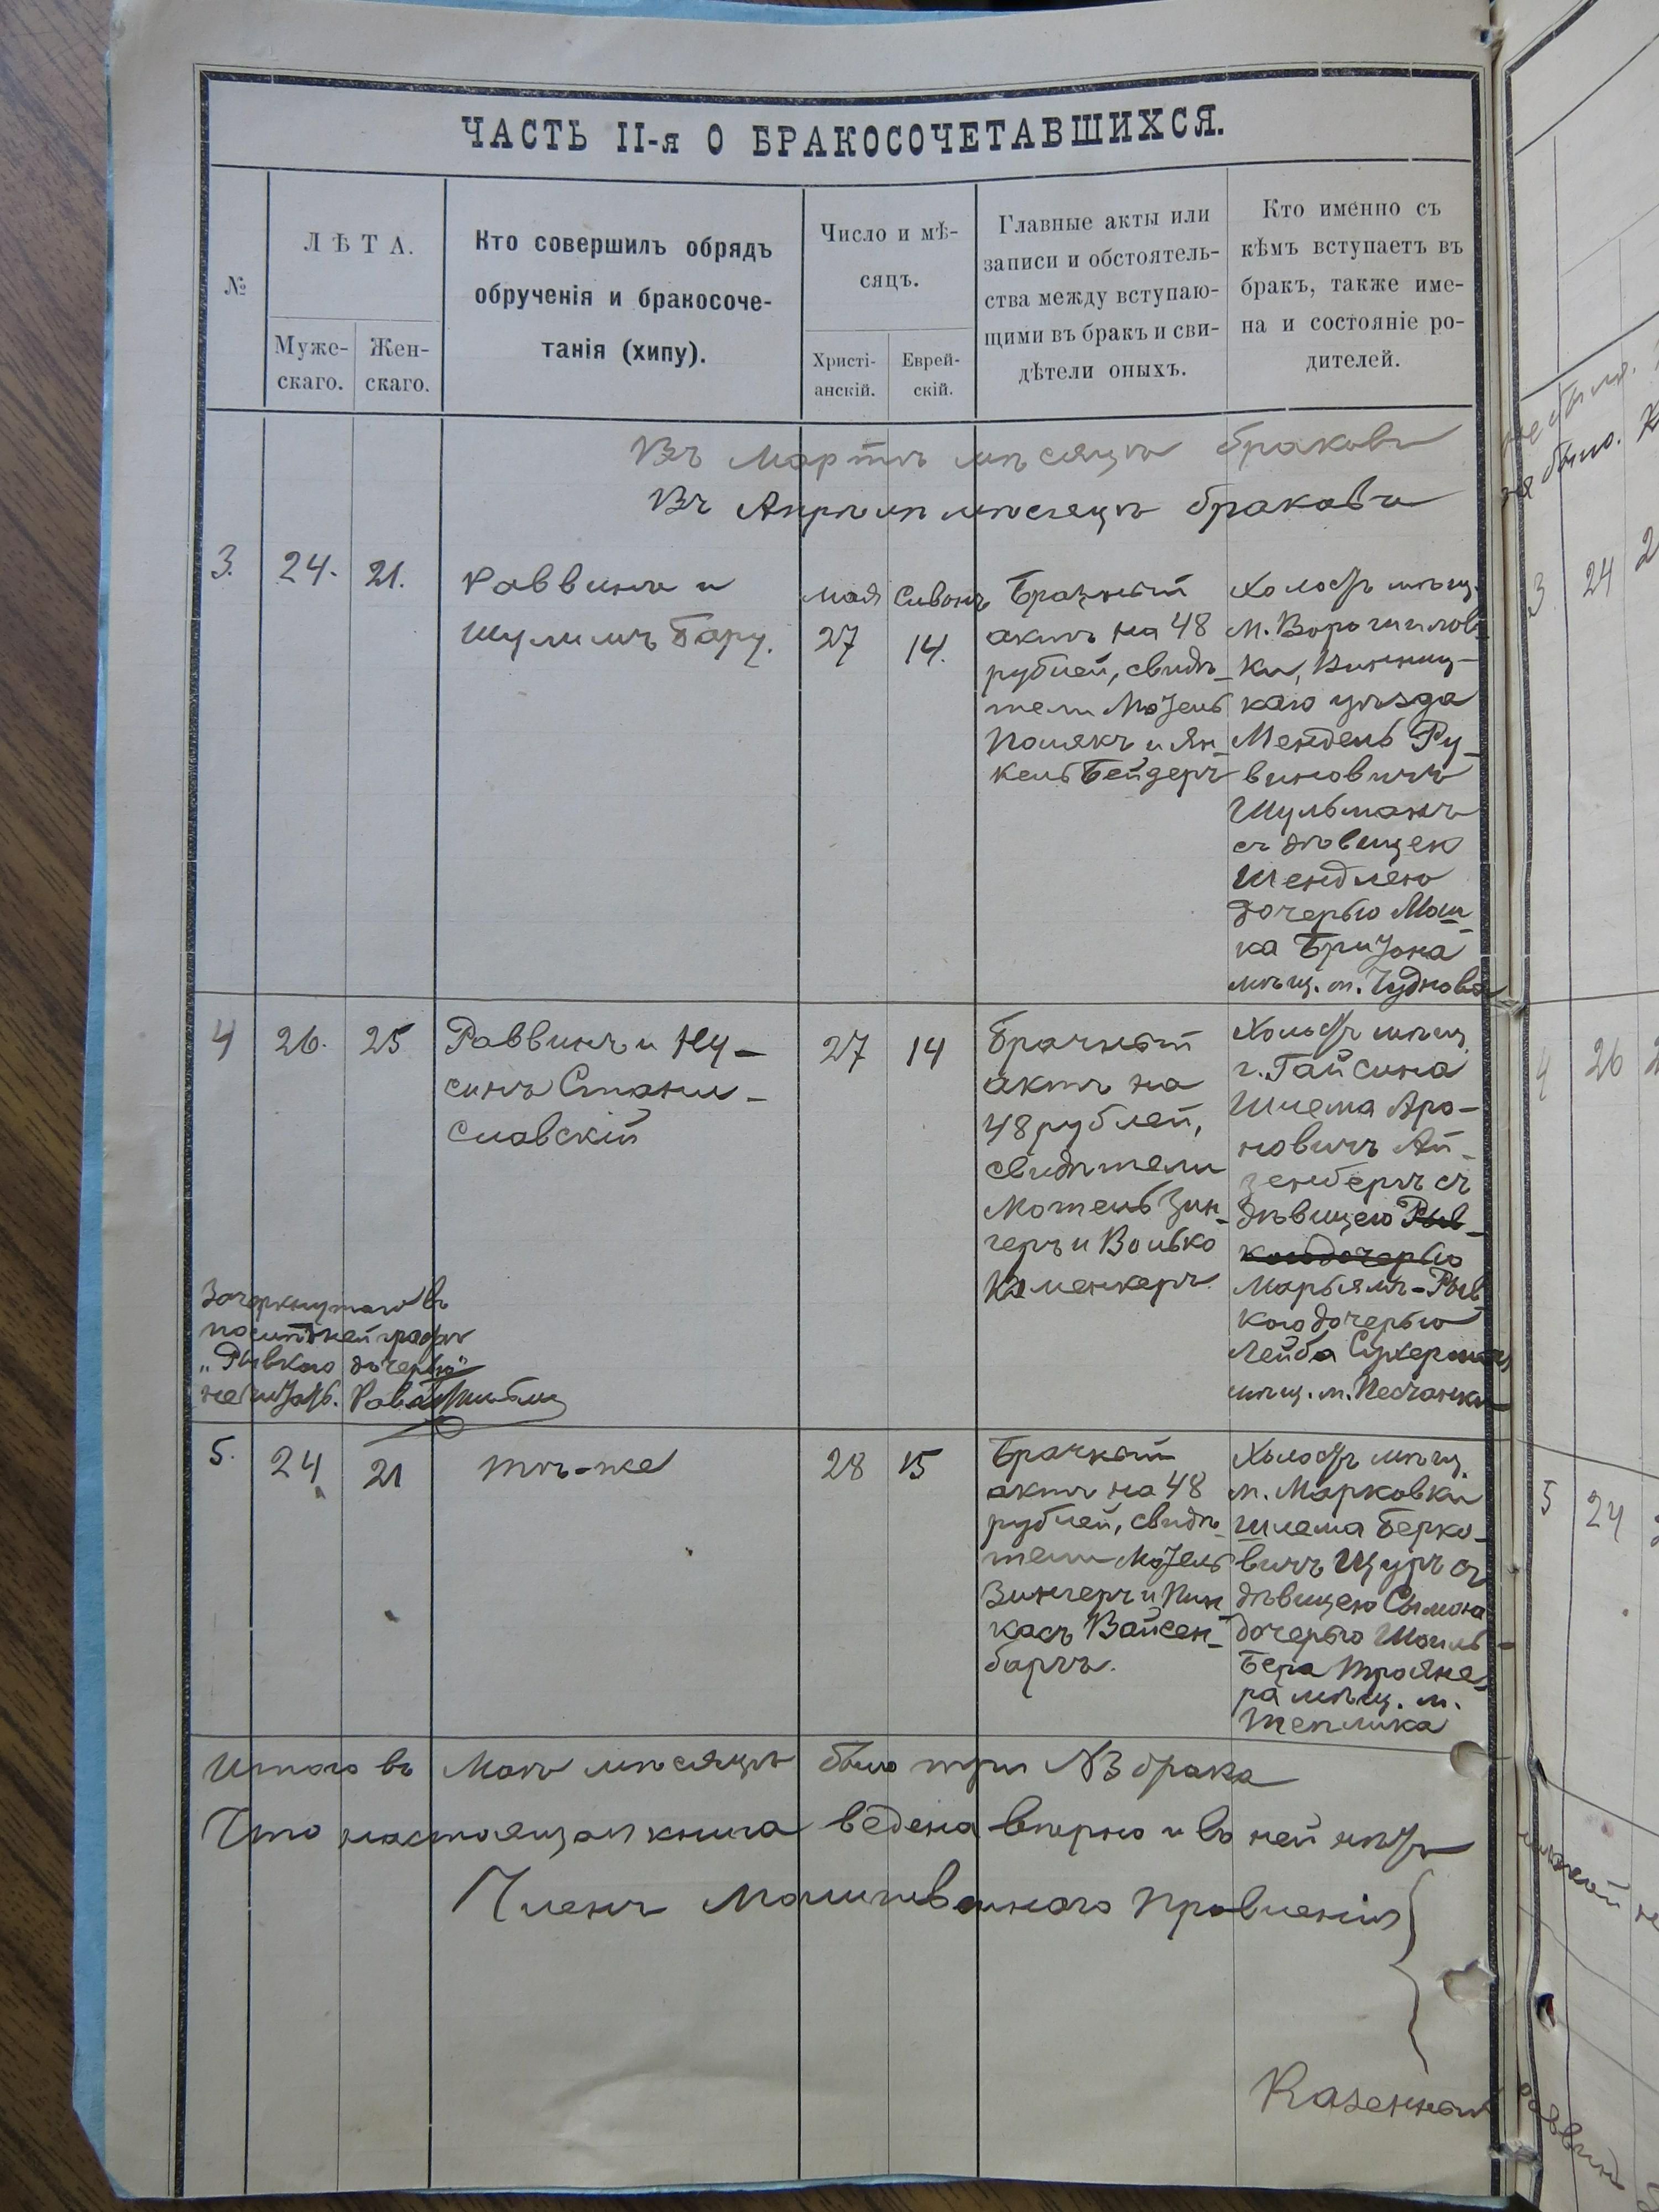 ЧАСТЬ II-я О БРАКОСОЧЕТАВШИХСЯ.
№
ЛѢТА.
Муже-
скаго.
Жен-
скаго.
Кто совершилъ обрядъ
обрученія и бракосоче-
танія (хипу).
Число и мѣ-
сяцъ.
Христі-
анскій.
Еврей-
скій.
Главные акты или
записи и обстоятель-
ства между вступаю-
щими въ бракъ и сви-
дѣтели оныхъ.
Кто именно съ
кѣмъ вступаетъ въ
бракъ, также име-
на и состояніе ро-
дителей.
Въ Мартѣ мѣсяцѣ браковъ
Въ Апрѣлѣ мѣсяцѣ браковъ
3.
24.
21.
Раввинъ и
Шулимъ Бару.
мая
27
Сивонъ
14.
Брачный
актъ на 48
рублей, свидѣ-
тели Мотель
Полякъ и Ян-
кель Бейдеръ
Холостъ мѣщ.
м. Ворошилов-
ки, Винниц-
каго уѣзда
Мендель Ру-
виновичъ
Шульманъ
съ дѣвицею
Шендлею
дочерью Мош-
ка Бритона
мѣщ. м. Чуднова
4
26.
25
Раввинъ и Ну-
синъ Стани-
славскій
27
14
Брачный
актъ на
48 рублей,
свидѣтели
Мотель Зин-
геръ и Волько
Каменкеръ
Холостъ мѣщ.
г. Гайсина
Шлема Аро-
новичъ Ай-
зенбергъ съ
дѣвицею Рыв-
кою дочерью
Марьямъ-Рыв
кою дочерью
Лейба Сухермана
мѣщ. м. Песчанки
Зачеркнутаго въ
послѣдней графѣ
„Рывкою дочерью"
не читать. Рав
5.
24
21
тѣ-же
28
15
Брачный
актъ на 48
рублей, свидѣ-
тели Мотель
Зингеръ и Пин
касъ Вайсен-
баргъ.
Холостъ мѣщ.
м. Марковки
Шлема Берко-
вичъ Щуръ съ
дѣвицею Сымою
дочерью Шоиль-
Бера Трояне
ра мѣщ. м.
Теплика
Итого въ Маѣ мѣсяцѣ было три №3 брака
Что настоящая книга ведена вѣрно и въ ней нѣтъ
Членъ Молитвеннаго Правленія
Казенный
3
24
4
26
5
24